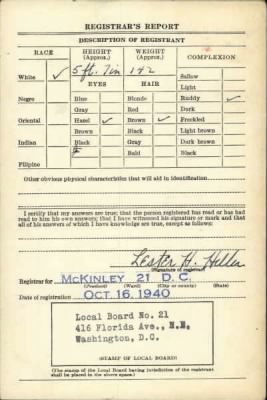 REGISTRAR'S REPORT
DESCRIPTION OF REGISTRANT
RACE HEIGHT (Approx.) WEIGHT (Approx.) COMPLEXION
White ✓ 5 ft. 7 in 142 Sallow
EYES HAIR Light
Negro Blue Blonde Ruddy ✓
Gray Red Dark
Oriental Hazel ✓ Brown ✓ Freckled
Brown Black Light brown
Indian Black Gray Dark brown
Bald Black
Filipino
Other obvious physical characteristics that will aid in identification
I certify that my answers are true; that the person registered has read or has had
read to him his own answers; that I have witnessed his signature or mark and that
all of his answers of which I have knowledge are true, except as follows:
Lester H. Heller
(Signature of registrar)
Registrar for McKINLEY 21 D. C.
(Precinct) (Ward) (City or county) (State)
Date of registration OCT. 16, 1940
Local Board No. 21
416 Florida Ave., N.W.
Washington, D.C.
(STAMP OF LOCAL BOARD)
(The stamp of the Local Board having jurisdiction of the registrant
shall be placed in the above space.)